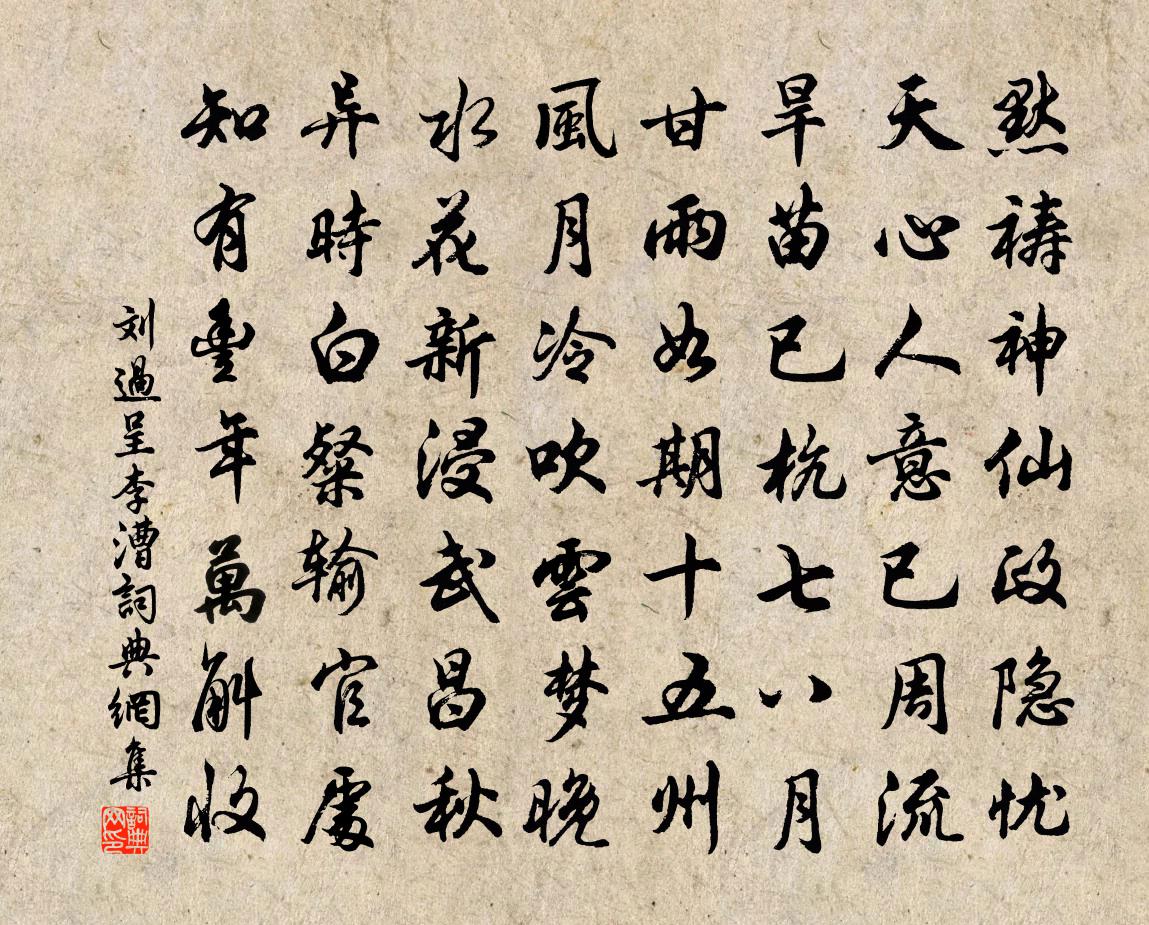 默祷神仙政隐忧
天心人意已周流
旱苗已槁七八月
甘雨如期十五州
風月冷吹雲梦晚
水花新浸武昌秋
异時白粲输官處
知有豊年萬斛收
刘過呈李漕詞典網集
詞典網印